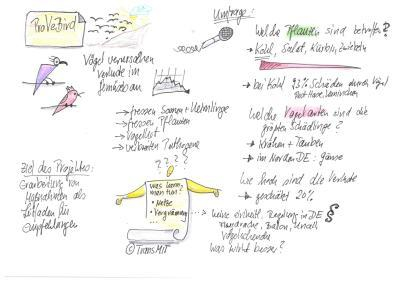 ProVeBird
Vögel verursachen
Verluste im
Gemüsebau an
→ fressen Samen + Keimlinge
→ fressen Pflanzen
→ Vogelkot
→ verbreiten Pathogene
Ziel des Projektes:
Erarbeitung von
Maßnahmen als
Leitfaden für
Empfehlungen
? ? ? ?
was kann
man tun?
• Netze
• Vergrämung
© TransMIT
Umfrage:
Welche Pflanzen sind betroffen?
→ Kohl, Salat, Kürbis, Zwiebeln
→ bei Kohl 93% Schäden durch Vögel
Welche Vogelarten sind die
größten Schädlinge?
→ Krähen + Tauben
→ im Norden DE: Gänse
Wie hoch sind die Verluste
→ geschätzt 20%
→ keine einheitl. Regelung in DE
Vogelscheuche
Was wirkt besser?